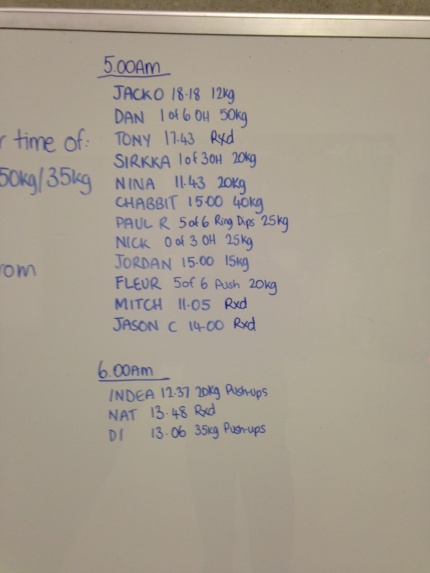 r time of:
50kg/35kg
rom
5.00Am
JACKO 18.18 12kg
DAN 1 of 6 OH 50kg
TONY 17.43 Rxd
SIRKKA 1 of 3 OH 20kg
NINA 11.43 20kg
CHABBIT 15.00 40kg
PAUL R 5 of 6 Ring Dips 25kg
NICK 0 of 3 OH 25kg
JORDAN 15:00 15kg
FLEUR 5 of 6 Push 20kg
MITCH 11.05 Rxd
JASON C 14.00 Rxd
6.00Am
INDEA 12.37 20kg Push-ups
NAT 13.48 Rxd
DI 13.06 35kg Push-ups